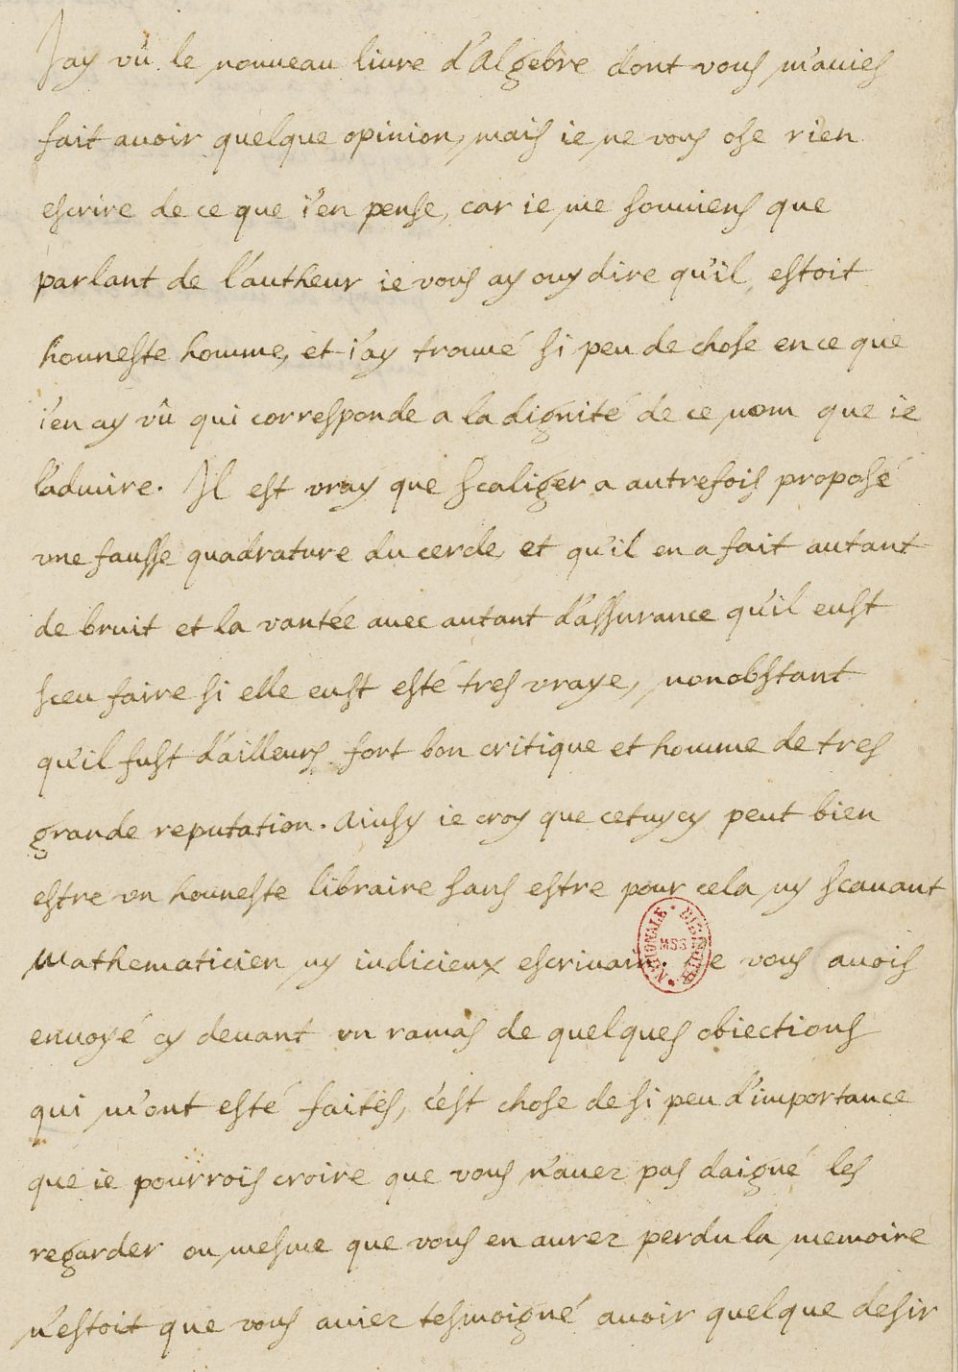 Jay vû le nouveau liure d'Algebre dont vous m'auies
fait auoir quelque opinion, mais ie ne vous ose rien
escrire de ce que i'en pense, car ie me souuiens que
parlant de l'autheur ie vous ay ouy dire qu'il estoit
honneste homme, et i'ay trouué si peu de chose en ce que
i'en ay vû qui corresponde a la dignité de ce nom que ie
l'admire. Il est vray que Scaliger a autrefois proposé
vne fausse quadrature du cercle, et qu'il en a fait autant
de bruit et la vantée auec autant d'assurance qu'il eust
sceu faire si elle eust esté tres vraye, nonobstant
qu'il fust d'ailleurs fort bon critique et homme de tres
grande reputation. Ainsy ie croy que cetuycy peut bien
estre vn honneste libraire sans estre pour cela ny scauant
Mathematicien ny iudicieux escriuain. Je vous auois
BIBL. NATIONALE MSS
enuoyé cy deuant vn ramas de quelques obiections
qui m'ont esté faites, c'est chose de si peu d'importance
que ie pourrois croire que vous n'auez pas daigné les
regarder ou mesme que vous en aurez perdu la memoire
n'estoit que vous auiez tesmoigné auoir quelque desir